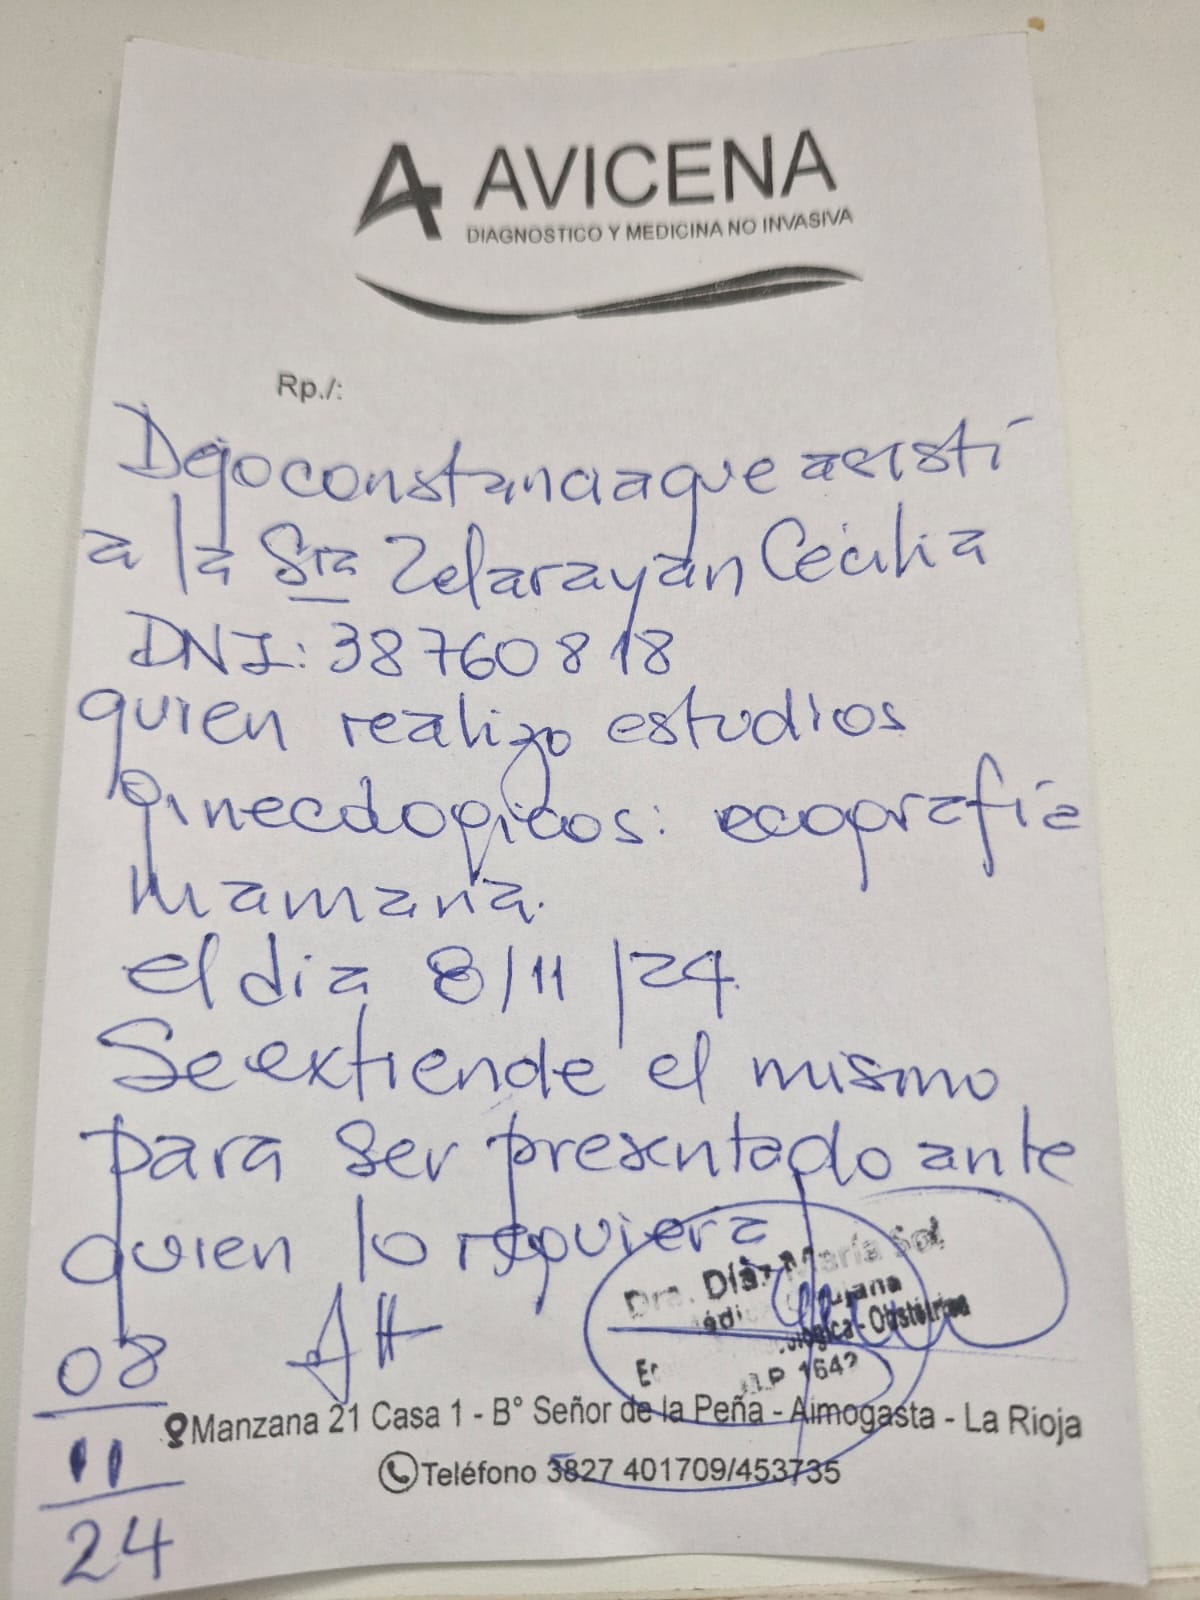 AVICENA
DIAGNOSTICO Y MEDICINA NO INVASIVA
Rp./:
Dejo constancia que asistí
a la Sra Zelarayán Cecilia
DNI: 38760818
quien realizo estudios
ginecologicos: ecografía
mamaria.
el dia 8/11/24
Se extiende el mismo
para ser presentado ante
quien lo requiera
Dra. Díaz María Sol
Obstétrica
M.P. 1642
08
11
24
Manzana 21 Casa 1 - B° Señor de la Peña - Aimogasta - La Rioja
Teléfono 3827 401709/453735